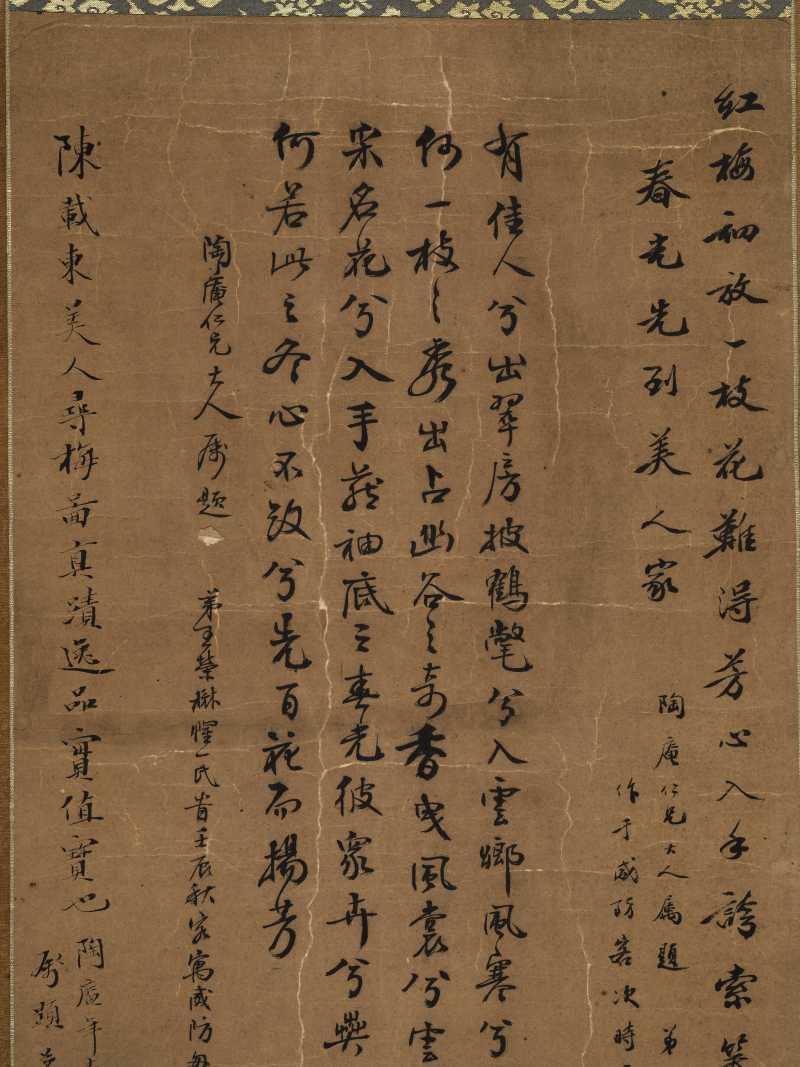 紅梅初放一枝花難得芳心入手誇索笑
春光先到美人家
陶庵仁兄大人屬題 弟
作于咸防客次時
有佳人兮出翠房披鶴氅兮入雲鄉風寒兮
何一枝之秀出占幽谷之奇香曳風裳兮雲
采名花兮入手藏袖底之春光彼眾卉兮
何若此之冬心不改兮先百花而揚芳
陶庵仁兄大人屬題
弟王榮懋惺一氏書壬辰秋客寓咸防
陳載東美人尋梅啚真蹟逸品寶值寶也
陶庵年
屬題